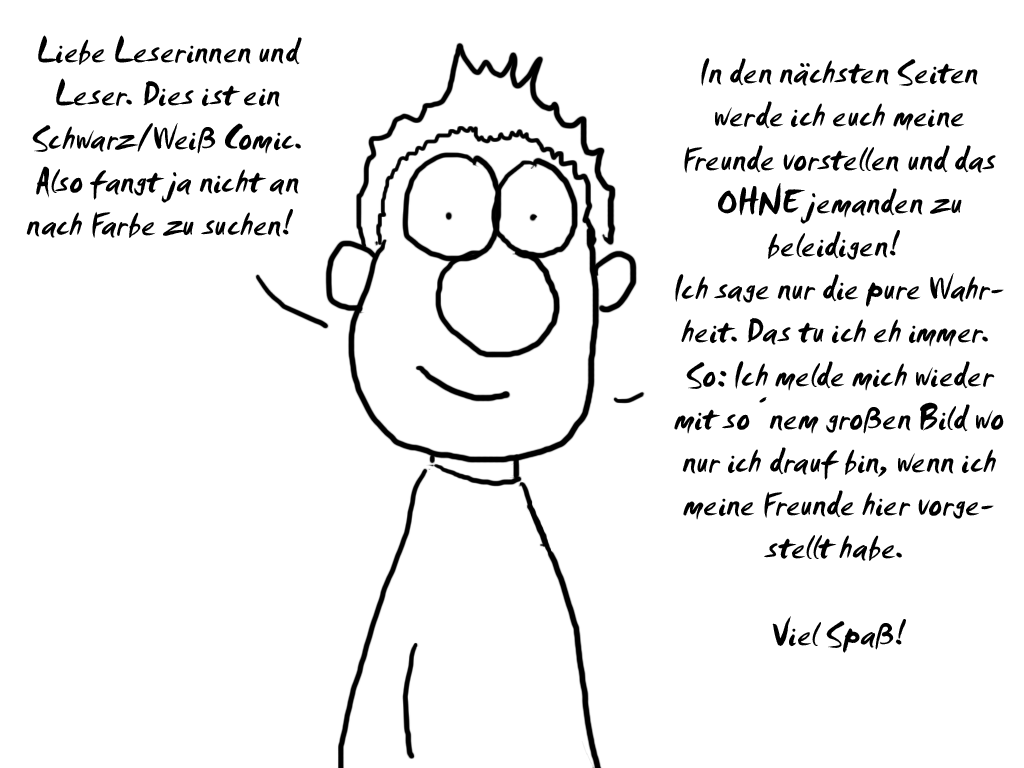 Liebe Leserinnen und
Leser. Dies ist ein
Schwarz/Weiß Comic.
Also fangt ja nicht an
nach Farbe zu suchen!
In den nächsten Seiten
werde ich euch meine
Freunde vorstellen und das
OHNE jemanden zu
beleidigen!
Ich sage nur die pure Wahr-
heit. Das tu ich eh immer.
So: Ich melde mich wieder
mit so ´nem großen Bild wo
nur ich drauf bin, wenn ich
meine Freunde hier vorge-
stellt habe.
Viel Spaß!